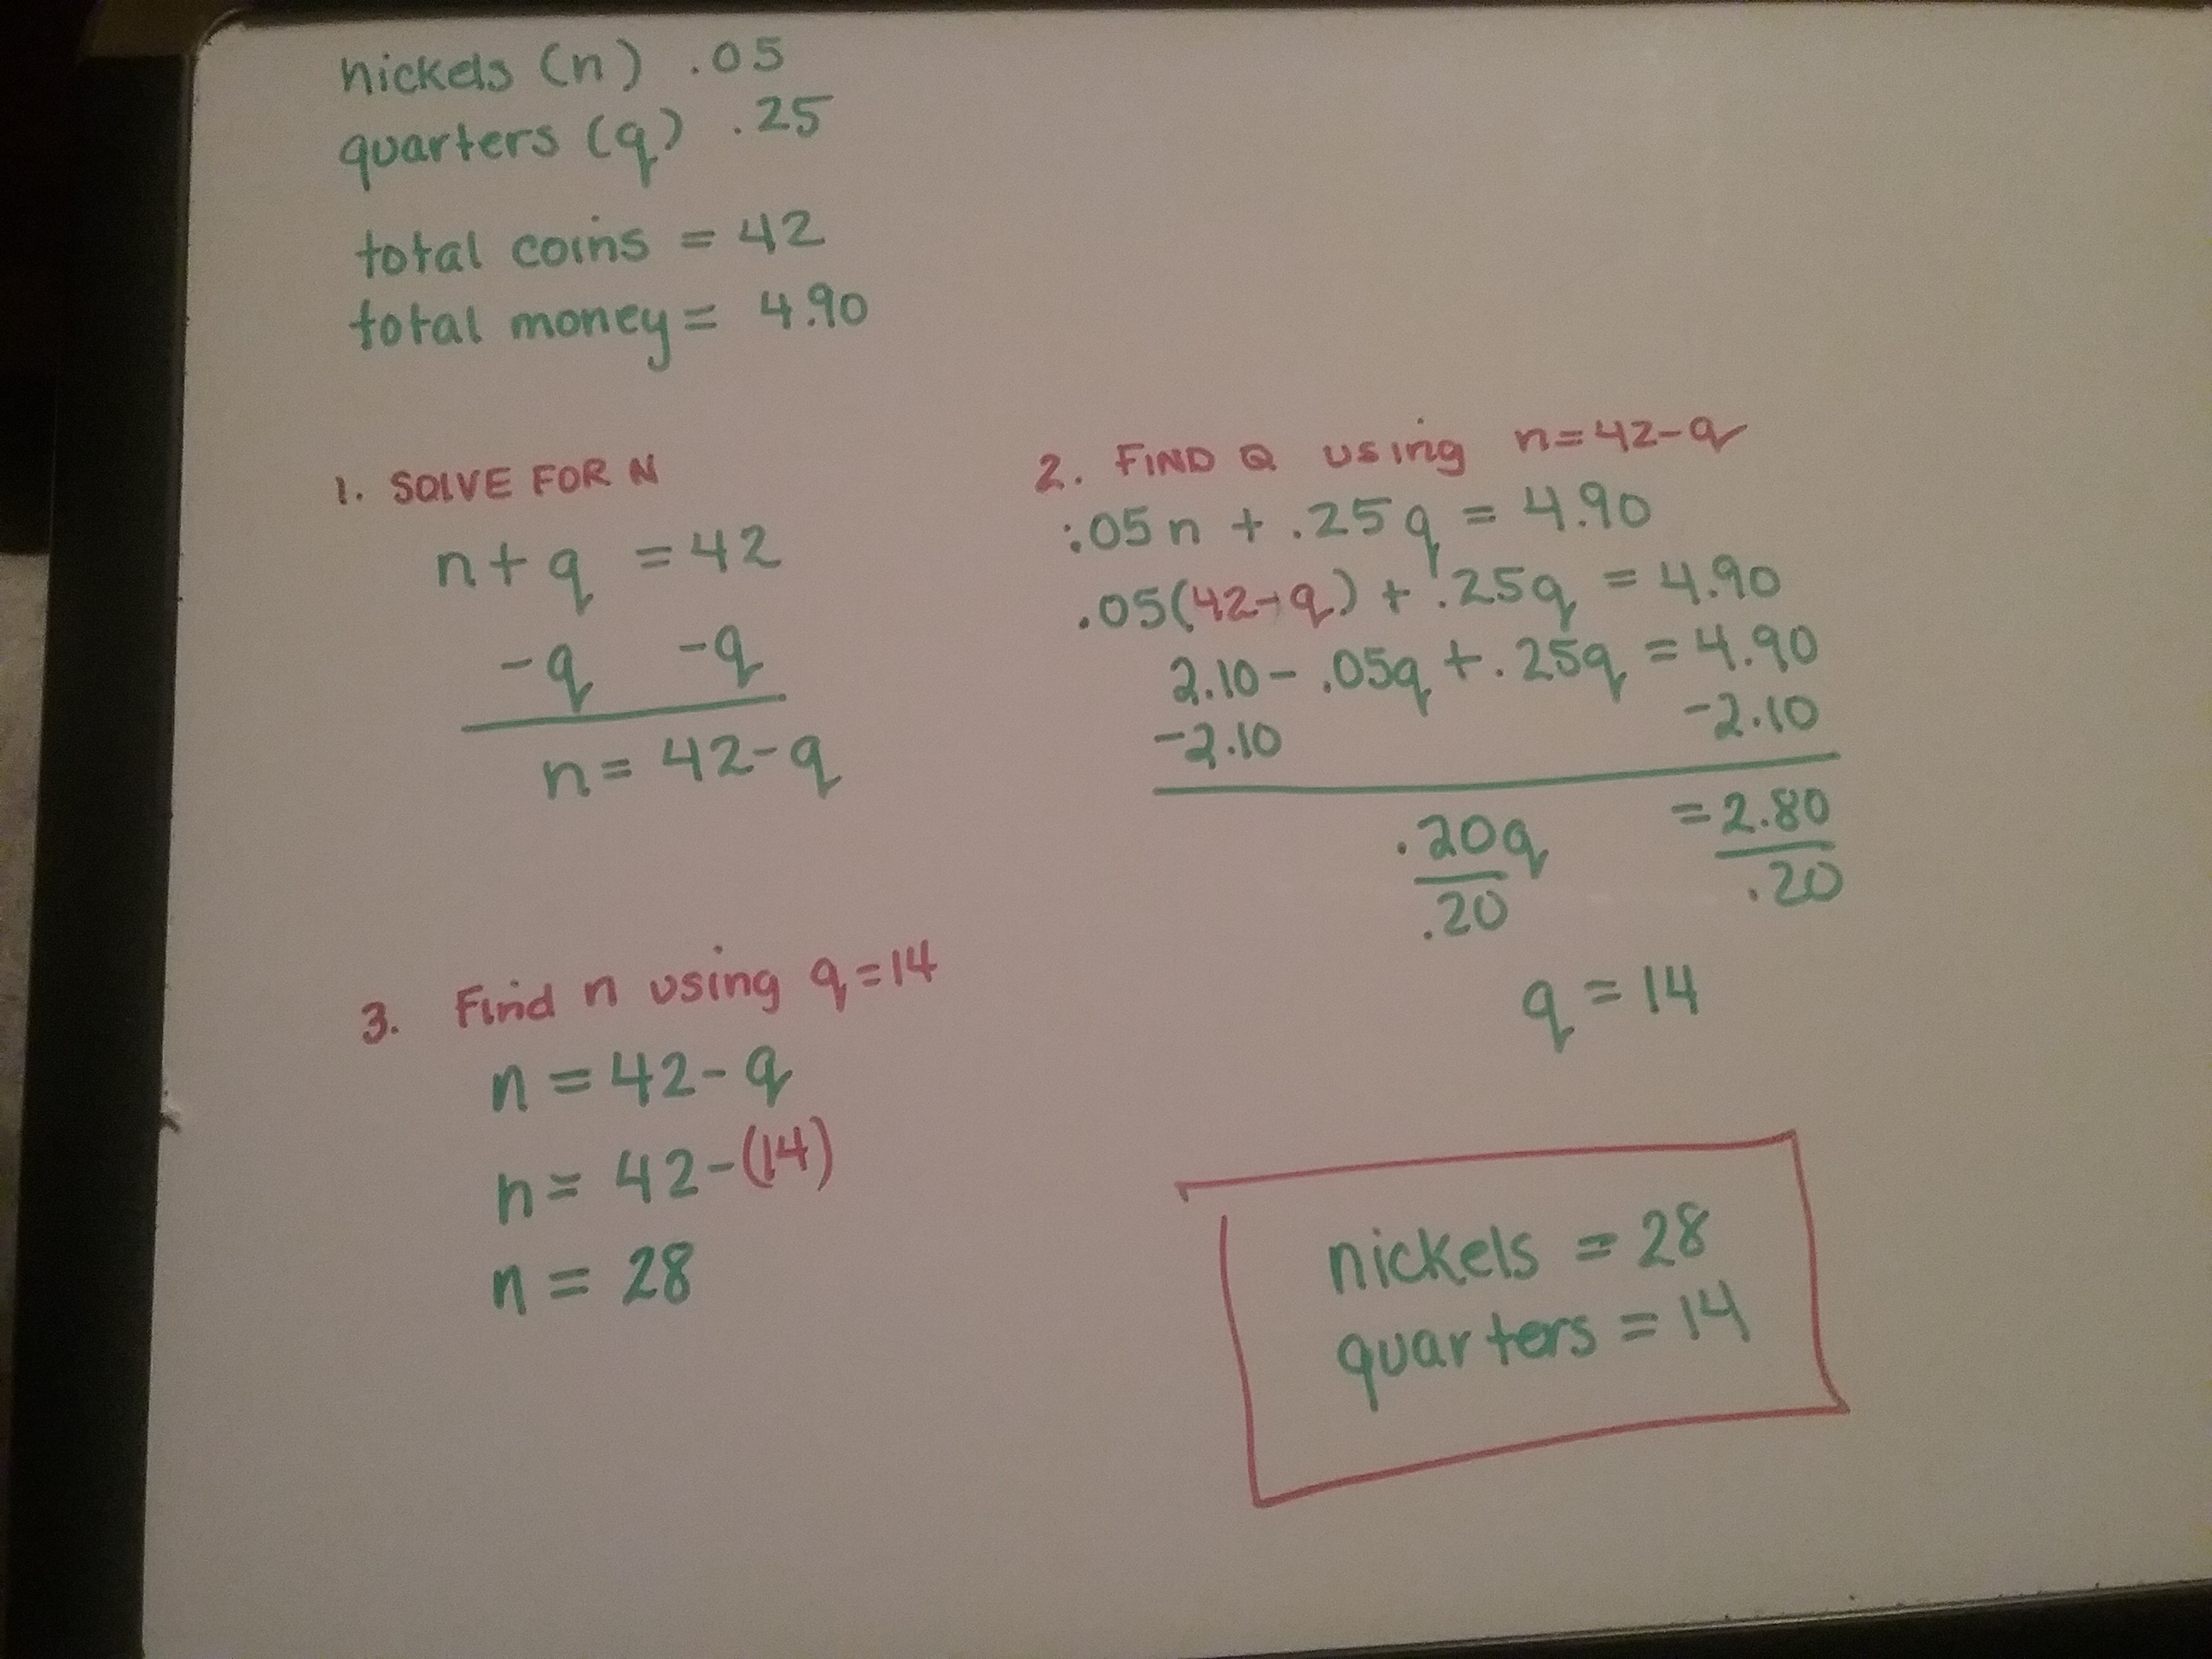 nickels (n) .05
quarters (q) .25
total coins = 42
total money = 4.90
1. SOLVE FOR N
n + q = 42
-q -q
n = 42-q
2. FIND Q using n=42-q
.05n + .25q = 4.90
.05(42-q) + .25q = 4.90
2.10 - .05q + .25q = 4.90
-2.10 -2.10
.20q = 2.80
.20 .20
q = 14
3. Find n using q=14
n = 42-q
n = 42-(14)
n = 28
nickels = 28
quarters = 14